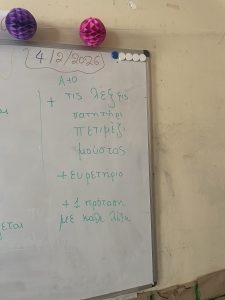 4/2/2026
Α+Ο
+ τις λέξεις
πατητήρι
πετιμέζι
μούστος
+ ευρετήριο
+ 1 πρόταση
με κάθε λέξη
εται